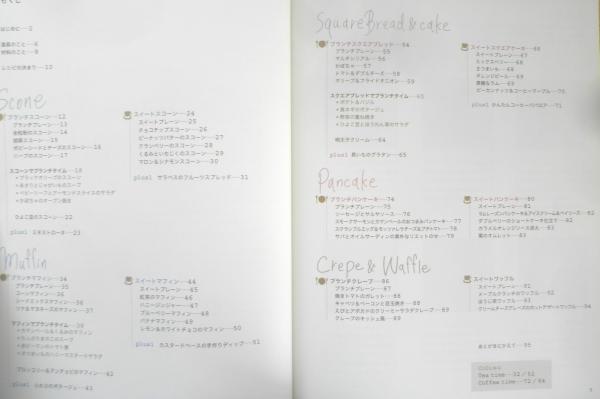 もくじ
はじめに…2
道具のこと…6
材料のこと…8
レシピの決まり…10
Scone
ブランチスコーン…12
ブランチプレーン…13
全粒粉のスコーン…14
ポピーシードとチーズのスコーン…16
ハーブのスコーン…17
スコーンでブランチタイム…18
ひよこ豆のスコーン…22
plus1 ミネストローネ…23
スイートスコーン…24
スイートプレーン…25
チョコチップスコーン…26
ピーナッツバターのスコーン…27
クランベリーのスコーン…28
くるみといちじくのスコーン…29
マロン＆シナモンスコーン…30
plus1 サラベスのフルーツスプレッド…31
Muffin
ブランチマフィン…34
ブランチプレーン…35
コーンマフィン…36
ツナ＆マヨネーズのマフィン…38
マフィンでブランチタイム…39
ブロッコリー＆アンチョビのマフィン…42
スイートマフィン…44
スイートプレーン…45
紅茶のマフィン…46
ハニージンジャー…47
ブルーベリーマフィン…48
バナナマフィン…49
レモン＆ホワイトチョコのマフィン…50
plus1 カスタードベースの手作りディップ…51
Square Bread & cake
ブランチスクエアブレッド…54
ブランチプレーン…55
マルチシリアル…56
かぼちゃ…57
トマト＆ダブルチーズ…58
オリーブ＆フライドオニオン…59
スクエアブレッドでブランチタイム…60
明太子クリーム…64
plus1 長いものグラタン…65
スイートスクエアケーキ…66
スイートプレーン…67
ミックスベリー…68
さつまいも…68
オレンジピール…69
黒糖＆ラム…69
ピーカンナッツ＆コーヒーマーブル…70
plus1 かんたんコーヒーババロア…71
Pancake
ブランチパンケーキ…74
ブランチプレーン…75
ソーセージとサルサソース…76
スモークサーモンとカマンベールのおつまみパンケーキ…77
スクランブルエッグ＆モッツァレラチーズ＆プチトマト…78
サバとオイルサーディンの意外なリエットのせ…79
スイートパンケーキ…80
スイートプレーン…81
ラムレーズンパンケーキ＆アイスクリーム＆ベイリーズ…82
ダブルベリーのショートケーキ仕立て…82
カラメルオレンジソース添え…83
苺のオムレット…83
Crepe & Waffle
ブランチクレープ…86
ブランチプレーン…87
焼きトマトのガレット…88
キャベツ＆ベーコンと目玉焼き…88
えびとアボカドのクリーミーサラダクレープ…89
クレープのキッシュ風…89
スイートワッフル
スイートプレーン…91
メープルクランチのワッフル…92
ほうじ茶ワッフル…93
クリームチーズアレーズのホットデザートワッフル…94
あとがきにかえて…95
Column
Tea time…32/52
Coffee time…72/84